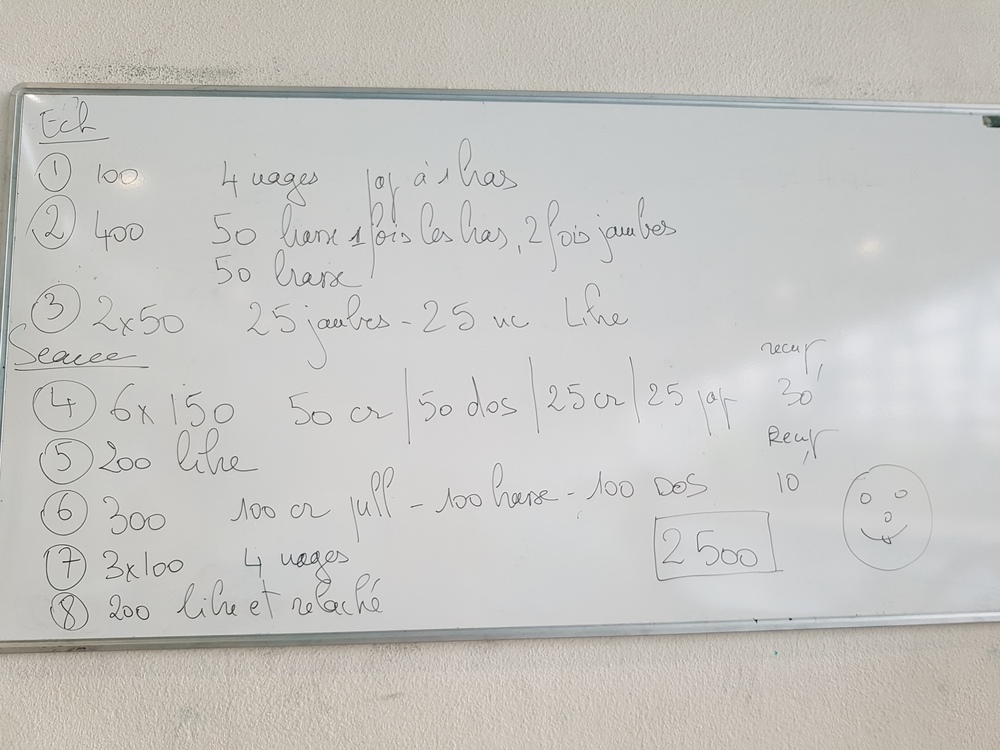 Ech
① 100 4 nages pap à 1 bras
② 400 50 brasse 1 fois les bras, 2 fois jambes
50 brasse
③ 2x50 25 jambes - 25 nc Libre
Séance
récup
④ 6x150 50 cr / 50 dos / 25 cr / 25 pap 30
Récup
⑤ 200 libre
⑥ 300 100 cr pull - 100 brasse - 100 DOS 10'
⑦ 3x100 4 nages
2500
⑧ 200 libre et relaché